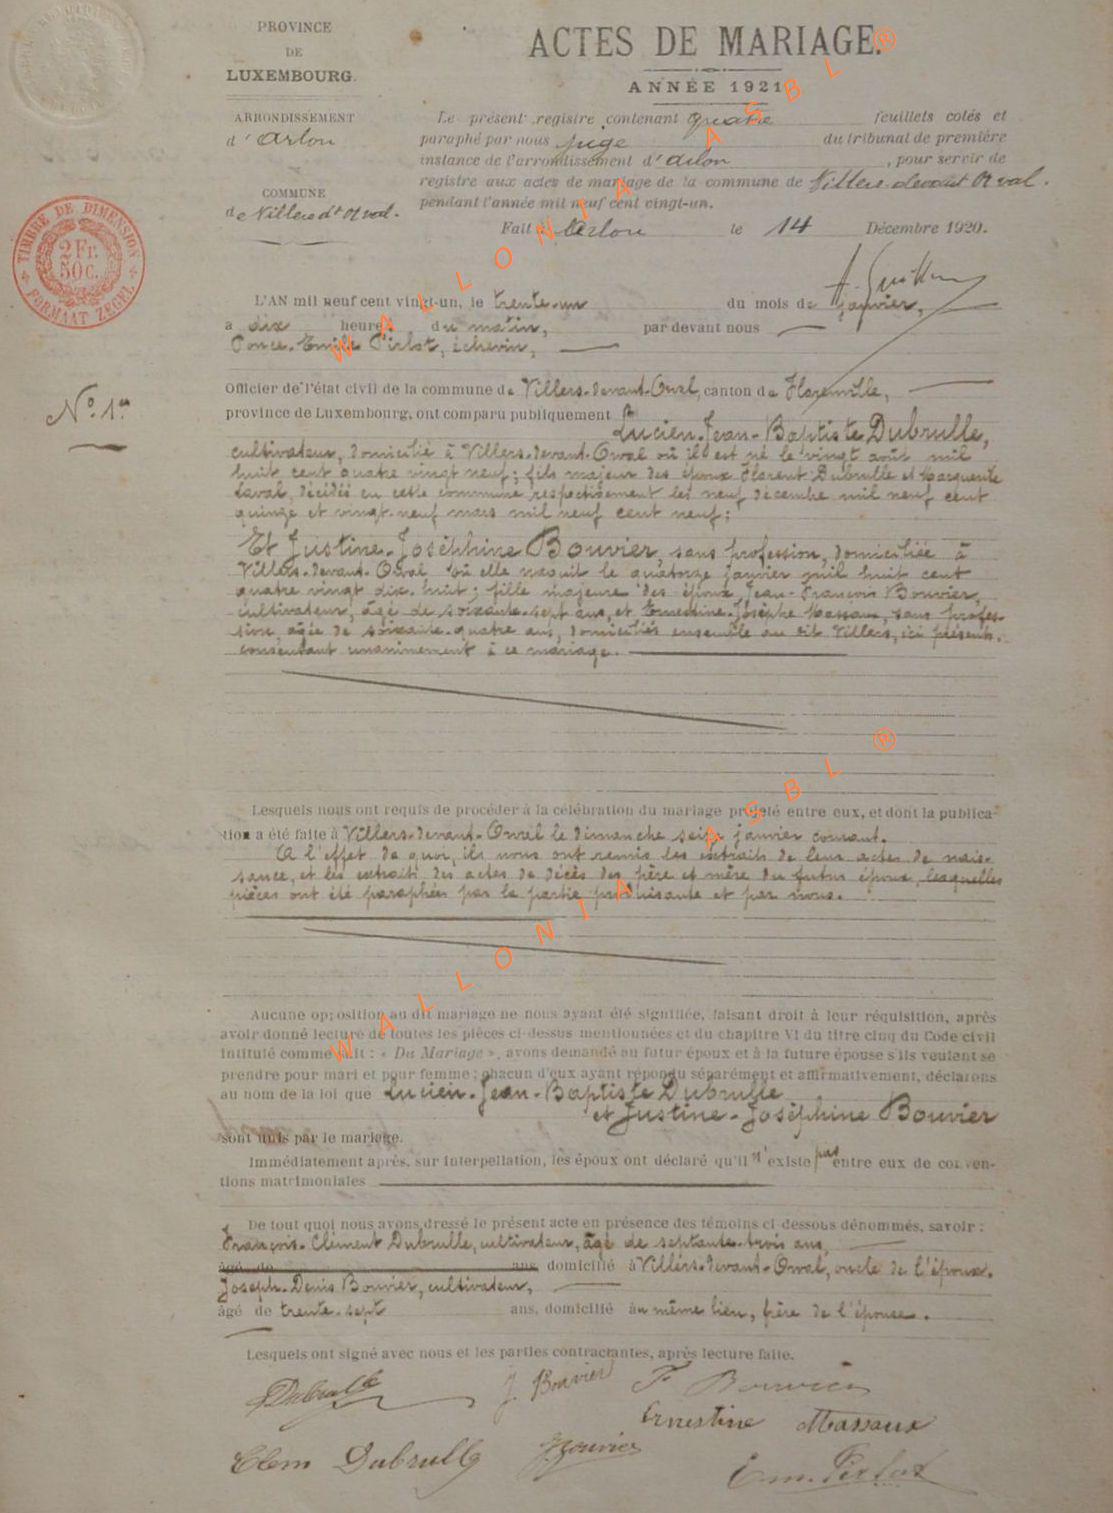 PROVINCE
DE
LUXEMBOURG.
ARRONDISSEMENT
d'Arlon
COMMUNE
de Villers dt Orval.
TIMBRE DE DIMENSION
2 Fr.
50 c.
FORMAAT ZEGEL
N° 1er
ACTES DE MARIAGE.
ANNÉE 1921
Le présent registre contenant quatre feuillets cotés et
paraphé par nous juge du tribunal de première
instance de l'arrondissement d'Arlon, pour servir de
registre aux actes de mariage de la commune de Villers-devant Orval.
pendant l'année mil neuf cent vingt-un.
Fait à Arlon le 14 Décembre 1920.
L'AN mil neuf cent vingt-un, le trente-un du mois de janvier,
à dix heures du matin, par devant nous
Ponce-Emile Pirlot, échevin,
Officier de l'état civil de la commune de Villers-devant-Orval, canton de Florenville,
province de Luxembourg, ont comparu publiquement
Lucien-Jean-Baptiste Dubrulle,
cultivateur, domicilié à Villers-devant-Orval où il est né le vingt août mil
huit cent quatre vingt neuf; fils majeur des époux Florent Dubrulle et
Laval, décédés en cette commune respectivement les neuf décembre mil neuf cent
quinze et vingt-neuf mars mil neuf cent neuf;
Et Justine-Joséphine Bouvier, sans profession, domiciliée à
Villers-devant-Orval où elle naquit le quatorze janvier mil huit cent
quatre vingt dix-huit; fille majeure des époux Jean-François Bouvier,
cultivateur, âgé de soixante-sept ans, et Ernestine-Josèphe Massaux, sans profes-
sion, âgée de soixante-quatre ans, domiciliés ensemble au dit Villers, ici présents,
consentant unanimement à ce mariage.
Lesquels nous ont requis de procéder à la célébration du mariage projeté entre eux, et dont la publica-
tion a été faite à Villers-devant-Orval le dimanche seize janvier courant.
A l'effet de quoi, ils nous ont remis les extraits de leur actes de nais-
sance, et les extraits des actes de décès des père et mère du futur époux, lesquelles
pièces ont été paraphées par la partie produisante et par nous.
Aucune opposition au dit mariage ne nous ayant été signifiée, faisant droit à leur réquisition, après
avoir donné lecture de toutes les pièces ci-dessus mentionnées et du chapitre VI du titre cinq du Code civil
intitulé comme suit : « Du Mariage », avons demandé au futur époux et à la future épouse s'ils veulent se
prendre pour mari et pour femme ; chacun d'eux ayant répondu séparément et affirmativement, déclarons
au nom de la loi que Lucien-Jean-Baptiste Dubrulle
et Justine-Joséphine Bouvier
sont unis par le mariage.
Immédiatement après, sur interpellation, les époux ont déclaré qu'il n'existe pas entre eux de conven-
tions matrimoniales
De tout quoi nous avons dressé le présent acte en présence des témoins ci-dessous dénommés, savoir :
François-Clément Dubrulle, cultivateur, âgé de septante-trois ans,
âgé de ans, domicilié à Villers-devant-Orval, oncle de l'époux.
Joseph-Denis Bouvier, cultivateur,
âgé de trente-sept ans, domicilié au même lieu, frère de l'épouse.
Lesquels ont signé avec nous et les parties contractantes, après lecture faite.
Dubrulle J. Bouvier F Bouvier
Ernestine Massaux
Clem Dubrulle J Bouvier Em. Pirlot
WALLONIA ASBL®
WALLONIA ASBL®